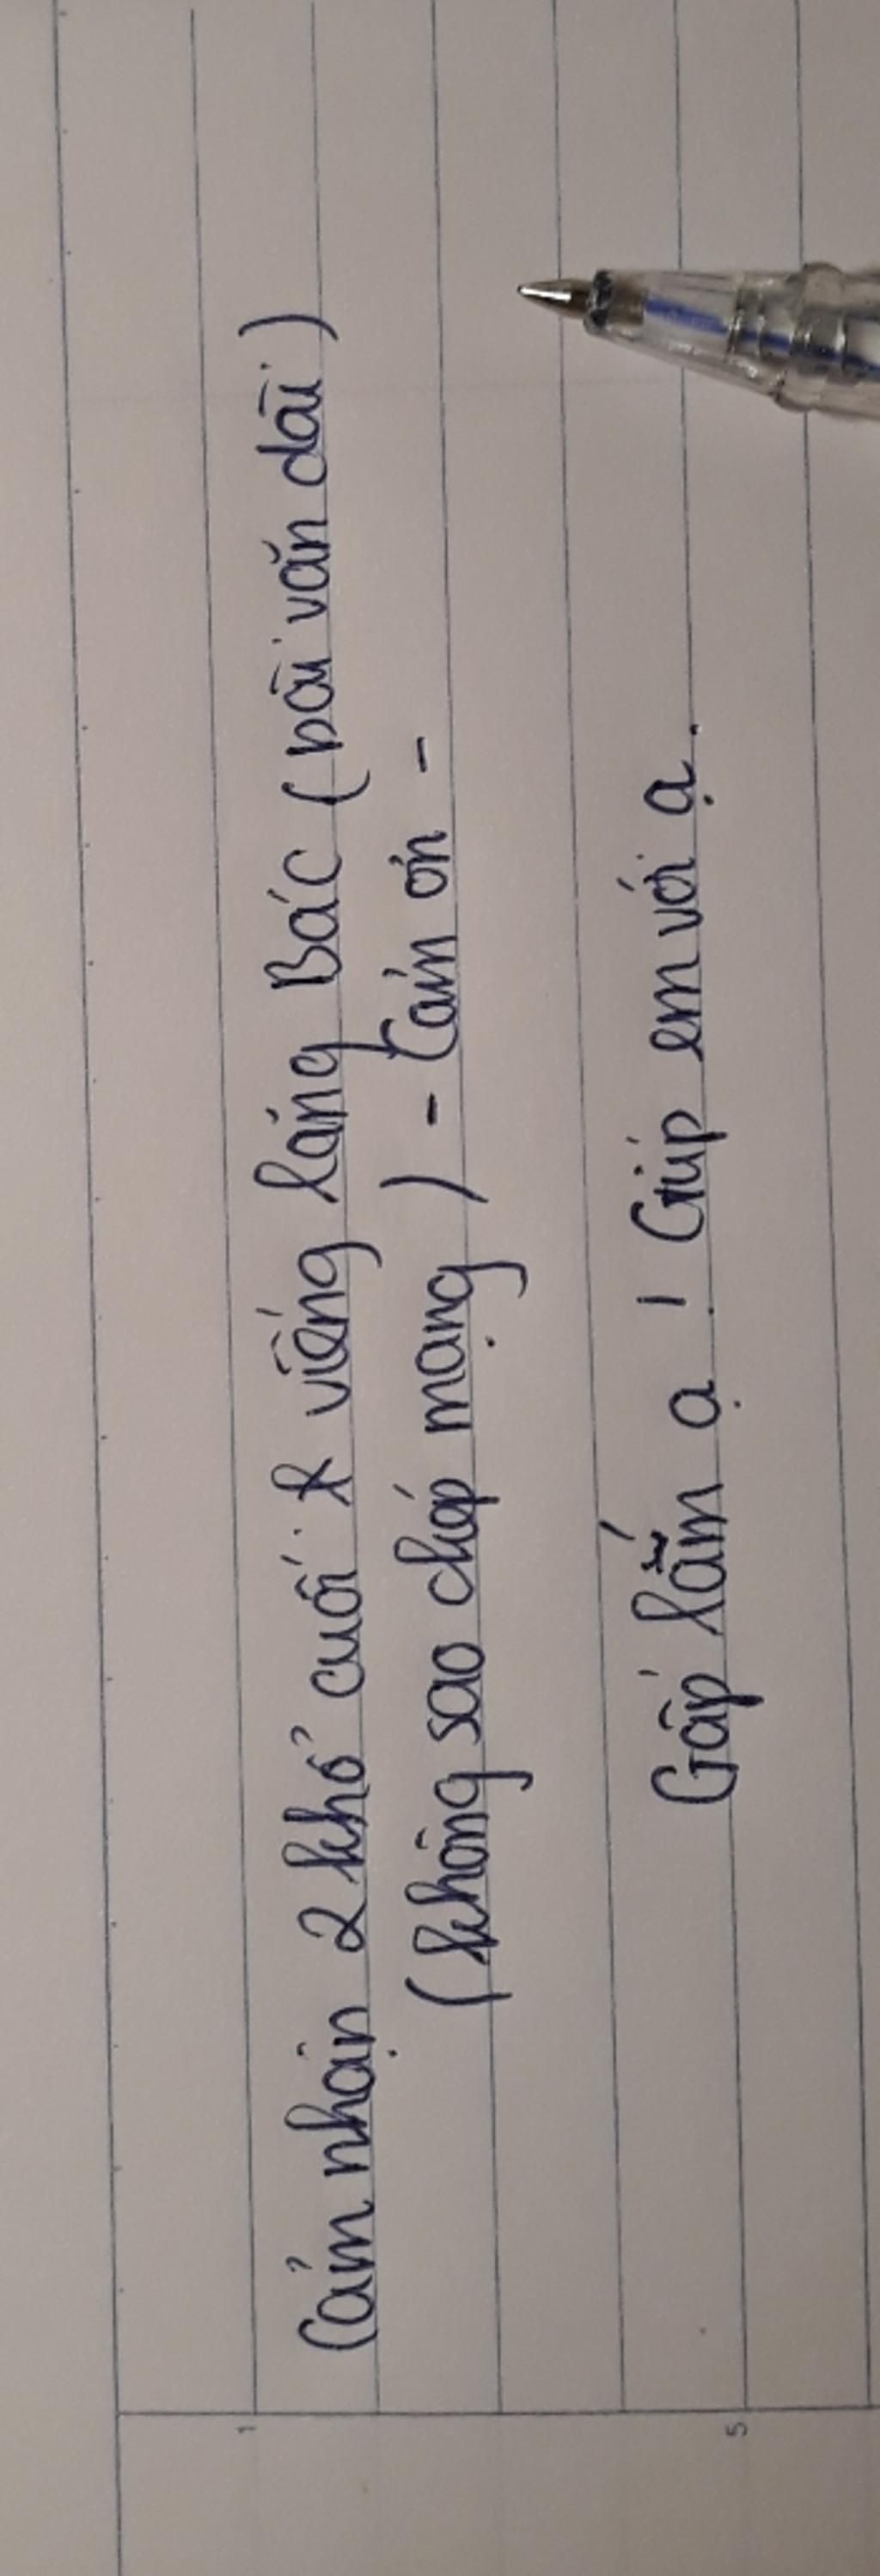 Cảm nhận 2 khổ cuối viếng lăng Bác (bài văn dài)
(không sao chép mạng) - Cảm ơn -
Gấp lắm ạ ! Giúp em với ạ.
1
5